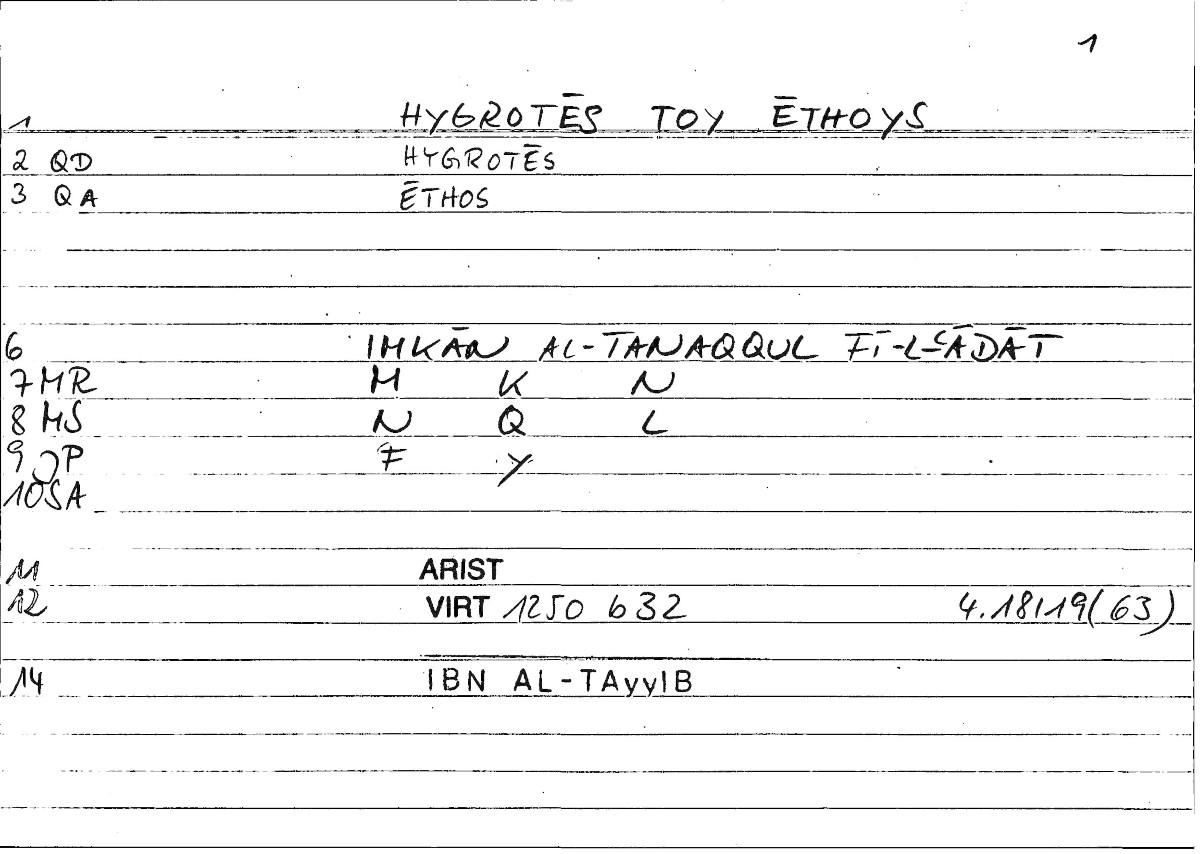 1
1 HYGROTĒS TOY ĒTHOYS
2 QD HYGROTĒS
3 QA ĒTHOS
6 IMKĀN AL-TANAQQUL FĪ-L-ʿĀDĀT
7 MR M K N
8 MS N Q L
9 QP F Y
10 SA
11 ARIST
12 VIRT 1250 632 4.18/19(63)
14 IBN AL-TAyyIB